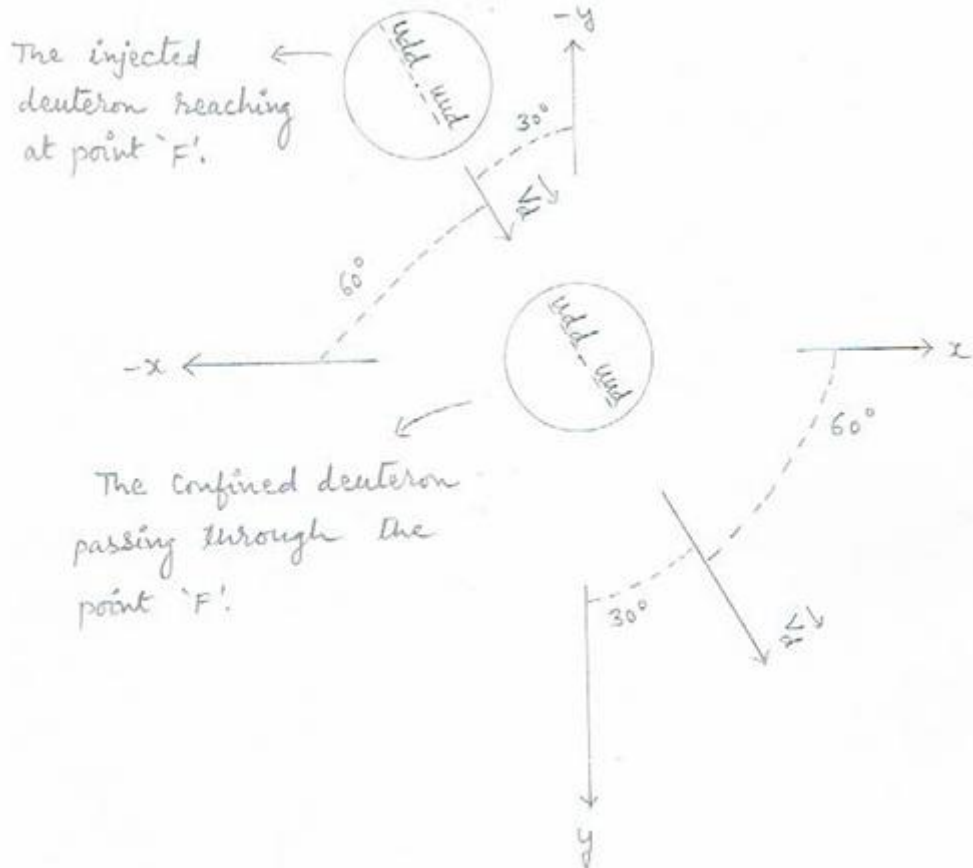 The injected
deuteron reaching
at point `F'.
udd...uud
-y
30°
Vd
60°
-x
udd-uud
x
60°
The Confined deuteron
passing through the
point `F'.
30°
y